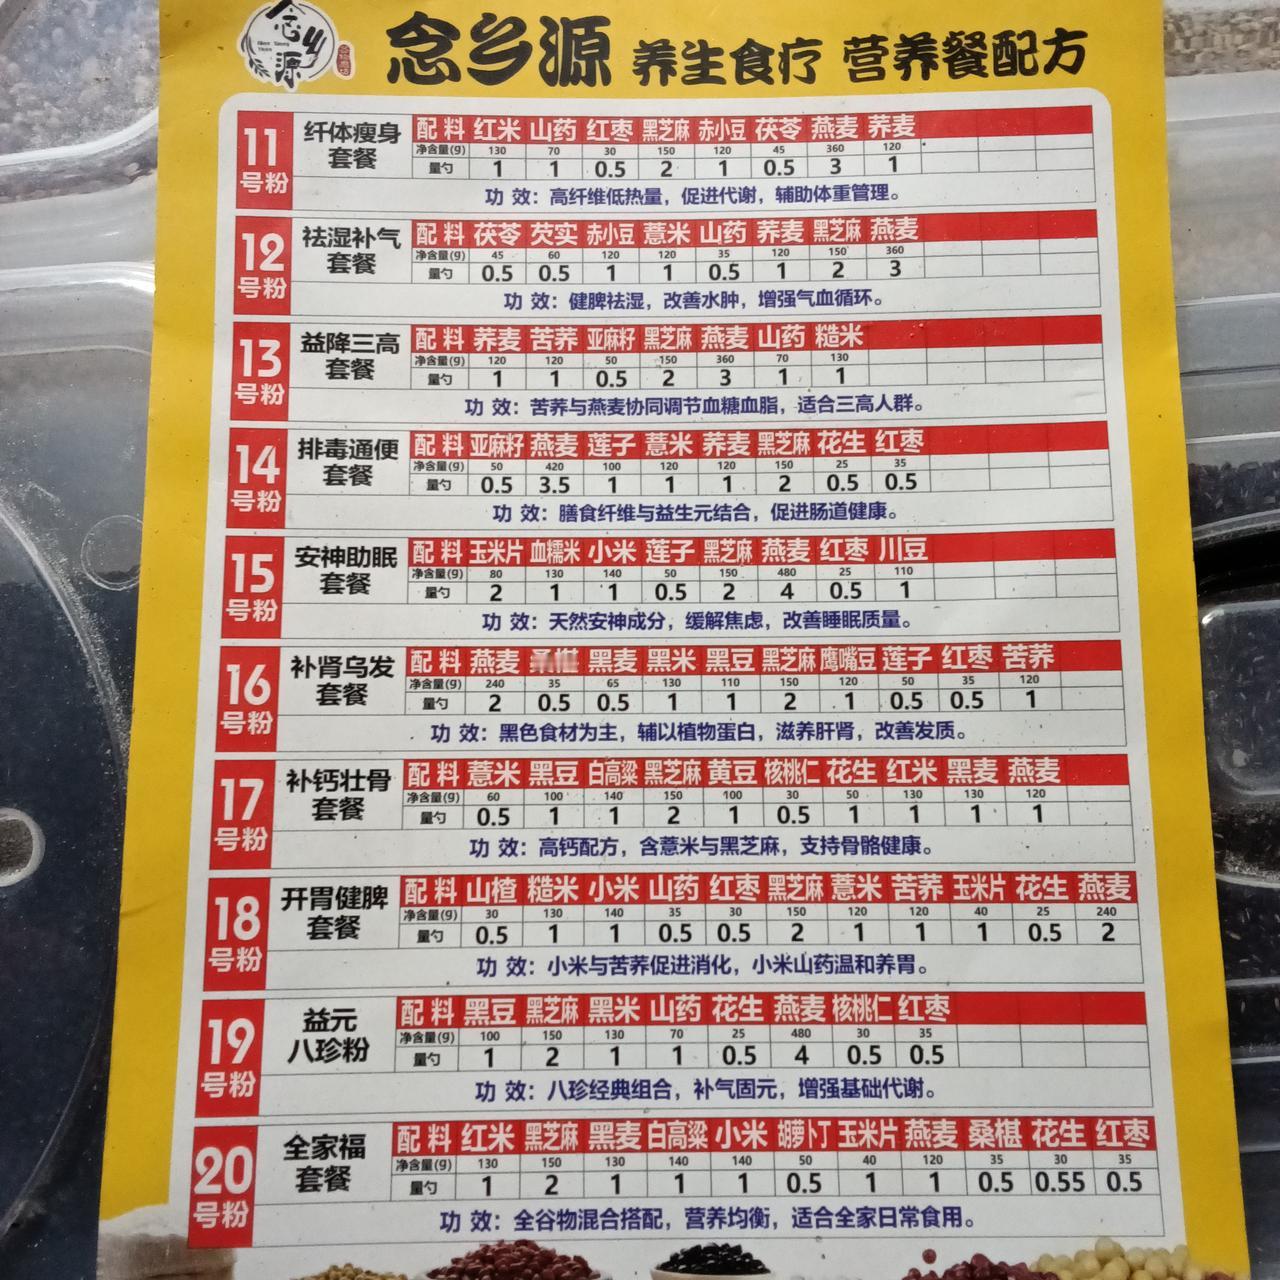 念乡源 养生食疗 营养餐配方
念乡源
11号粉 纤体瘦身套餐
配料 红米 山药 红枣 黑芝麻 赤小豆 茯苓 燕麦 荞麦
净含量(g) 130 70 30 150 120 45 360 120
量勺 1 1 0.5 2 1 0.5 3 1
功效：高纤维低热量，促进代谢，辅助体重管理。
12号粉 祛湿补气套餐
配料 茯苓 芡实 赤小豆 薏米 山药 荞麦 黑芝麻 燕麦
净含量(g) 45 60 120 120 35 120 150 360
量勺 0.5 0.5 1 1 0.5 1 2 3
功效：健脾祛湿，改善水肿，增强气血循环。
13号粉 益降三高套餐
配料 荞麦 苦荞 亚麻籽 黑芝麻 燕麦 山药 糙米
净含量(g) 120 120 50 150 360 70 130
量勺 1 1 0.5 2 3 1 1
功效：苦荞与燕麦协同调节血糖血脂，适合三高人群。
14号粉 排毒通便套餐
配料 亚麻籽 燕麦 莲子 薏米 荞麦 黑芝麻 花生 红枣
净含量(g) 50 420 100 120 120 150 25 35
量勺 0.5 3.5 1 1 1 2 0.5 0.5
功效：膳食纤维与益生元结合，促进肠道健康。
15号粉 安神助眠套餐
配料 玉米片 血糯米 小米 莲子 黑芝麻 燕麦 红枣 川豆
净含量(g) 80 130 140 50 150 480 25 110
量勺 2 1 1 0.5 2 4 0.5 1
功效：天然安神成分，缓解焦虑，改善睡眠质量。
16号粉 补肾乌发套餐
配料 燕麦 黑麦 黑米 黑豆 黑芝麻 鹰嘴豆 莲子 红枣 苦荞
净含量(g) 240 35 65 130 110 150 120 50 35 120
量勺 2 0.5 0.5 1 1 2 1 0.5 0.5 1
功效：黑色食材为主，辅以植物蛋白，滋养肝肾，改善发质。
17号粉 补钙壮骨套餐
配料 薏米 黑豆 白高粱 黑芝麻 黄豆 核桃仁 花生 红米 黑麦 燕麦
净含量(g) 60 100 140 150 100 30 50 130 130 120
量勺 0.5 1 1 2 1 0.5 1 1 1 1
功效：高钙配方，含薏米与黑芝麻，支持骨骼健康。
18号粉 开胃健脾套餐
配料 山楂 糙米 小米 山药 红枣 黑芝麻 薏米 苦荞 玉米片 花生 燕麦
净含量(g) 30 130 140 35 30 150 120 120 40 25 240
量勺 0.5 1 1 0.5 0.5 2 1 1 1 0.5 2
功效：小米与苦荞促进消化，小米山药温和养胃。
19号粉 益元八珍粉
配料 黑豆 黑芝麻 黑米 山药 花生 燕麦 核桃仁 红枣
净含量(g) 100 150 130 70 25 480 30 35
量勺 1 2 1 1 0.5 4 0.5 0.5
功效：八珍经典组合，补气固元，增强基础代谢。
20号粉 全家福套餐
配料 红米 黑芝麻 黑麦 白高粱 小米 胡萝卜丁 玉米片 燕麦 桑椹 花生 红枣
净含量(g) 130 150 130 140 140 50 40 120 35 30 35
量勺 1 2 1 1 1 0.5 1 1 0.5 0.55 0.5
功效：全谷物混合搭配，营养均衡，适合全家日常食用。